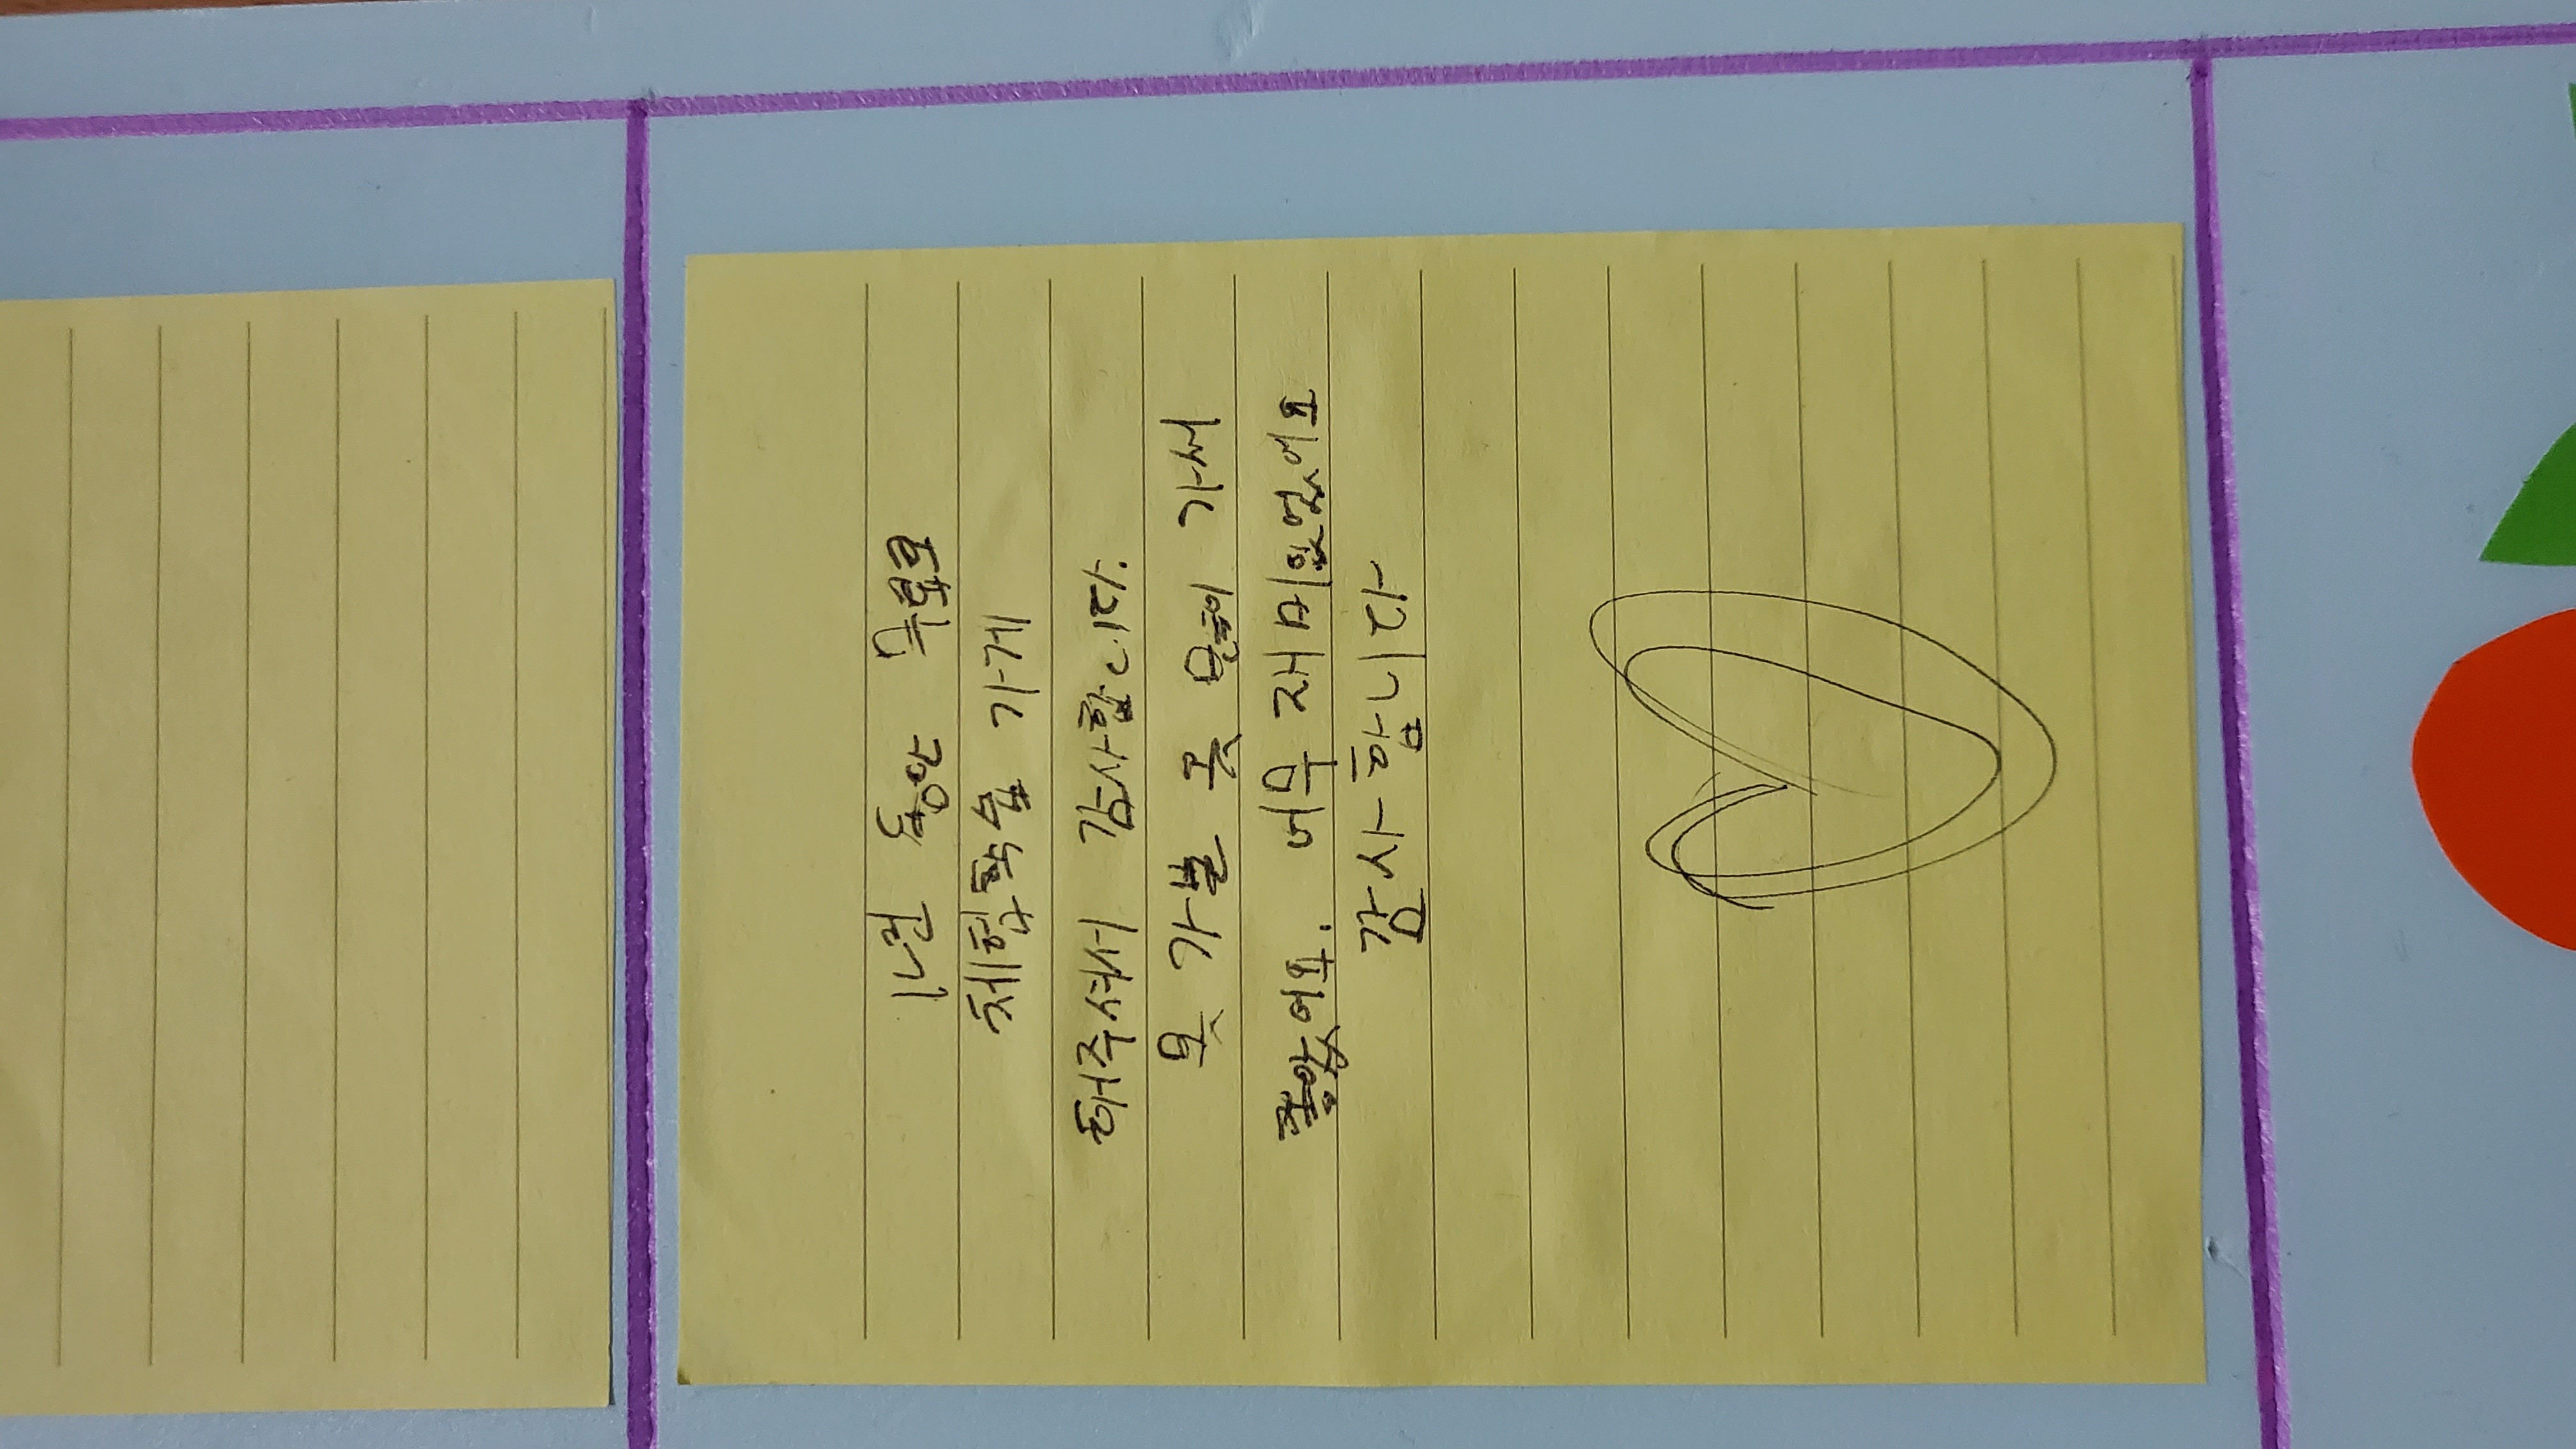 1년 동안 무료로
체험학습 가게
해주셔서 감사합니다.
못 가본 곳 많이 가서
좋았어요. 너무 재미있었어요
감사합니다